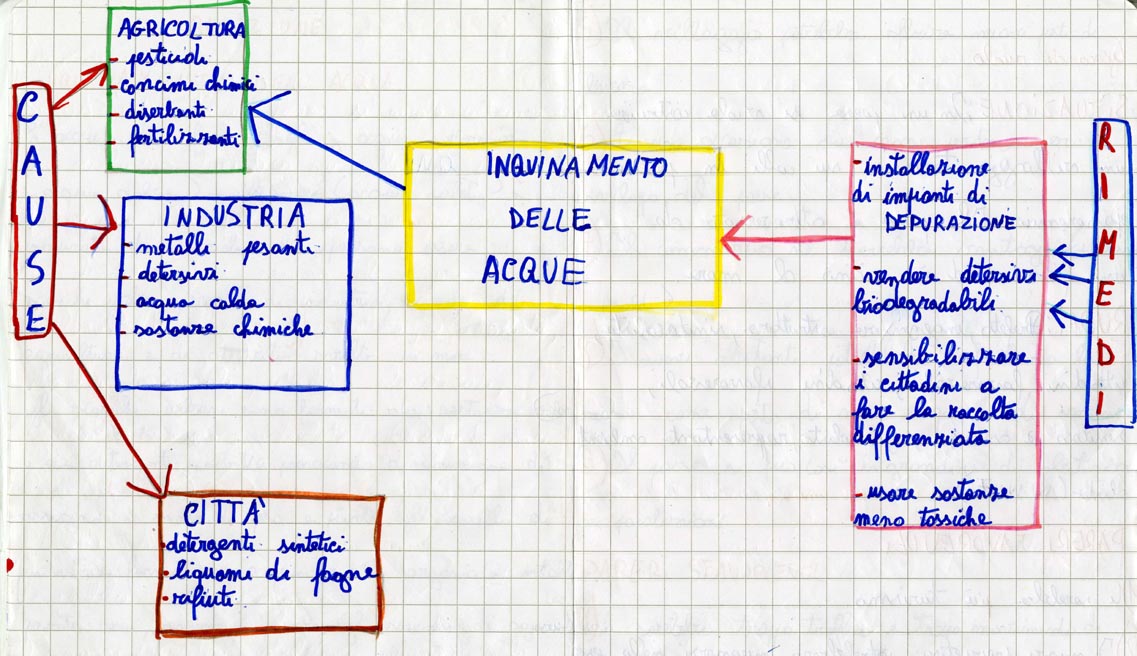 CAUSE
AGRICOLTURA
- pesticidi
- concimi chimici
- diserbanti
- fertilizzanti
INDUSTRIA
- metalli pesanti
- detersivi
- acqua calda
- sostanze chimiche
CITTÀ
- detergenti sintetici
- liquami di fogne
- rifiuti
INQUINAMENTO
DELLE
ACQUE
- installazione
di impianti di
DEPURAZIONE
- vendere detersivi
biodegradabili
- sensibilizzare
i cittadini a
fare la raccolta
differenziata
- usare sostanze
meno tossiche
RIMEDI